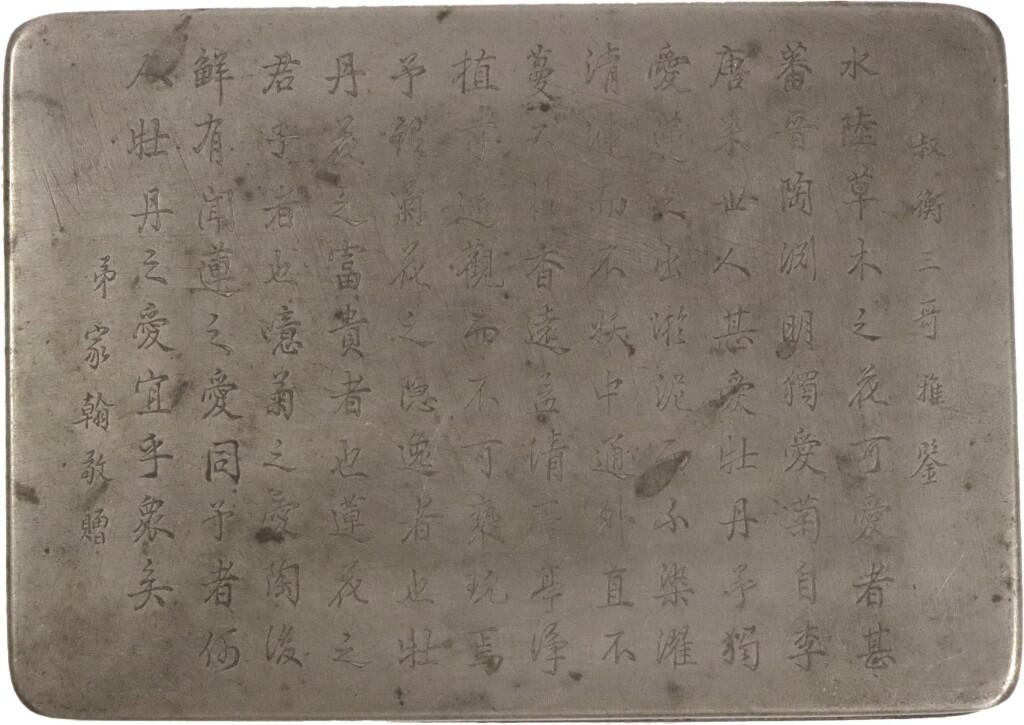 叔衡三哥雅鑒
水陸草木之花可愛者甚
蕃晋陶渊明獨愛菊自李
唐来世人甚愛牡丹予獨
愛蓮之出淤泥而不染濯
清漣而不妖中通外直不
蔓不枝香遠益清亭亭净
植可遠觀而不可褻玩焉
予謂菊花之隐逸者也牡
丹花之富貴者也蓮花之
君子者也噫菊之愛陶後
鮮有聞蓮之愛同予者何
人牡丹之愛宜乎衆矣
弟家翰敬贈